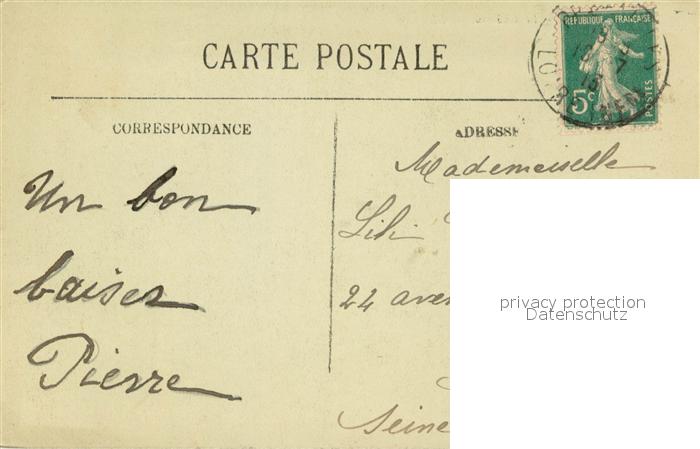 CARTE POSTALE
REPUBLIQUE FRANÇAISE
5c
POSTES
CORRESPONDANCE
ADRESSE
Un bon
baiser
Pierre
Mademoiselle
Lili
24
Seine
privacy protection
Datenschutz